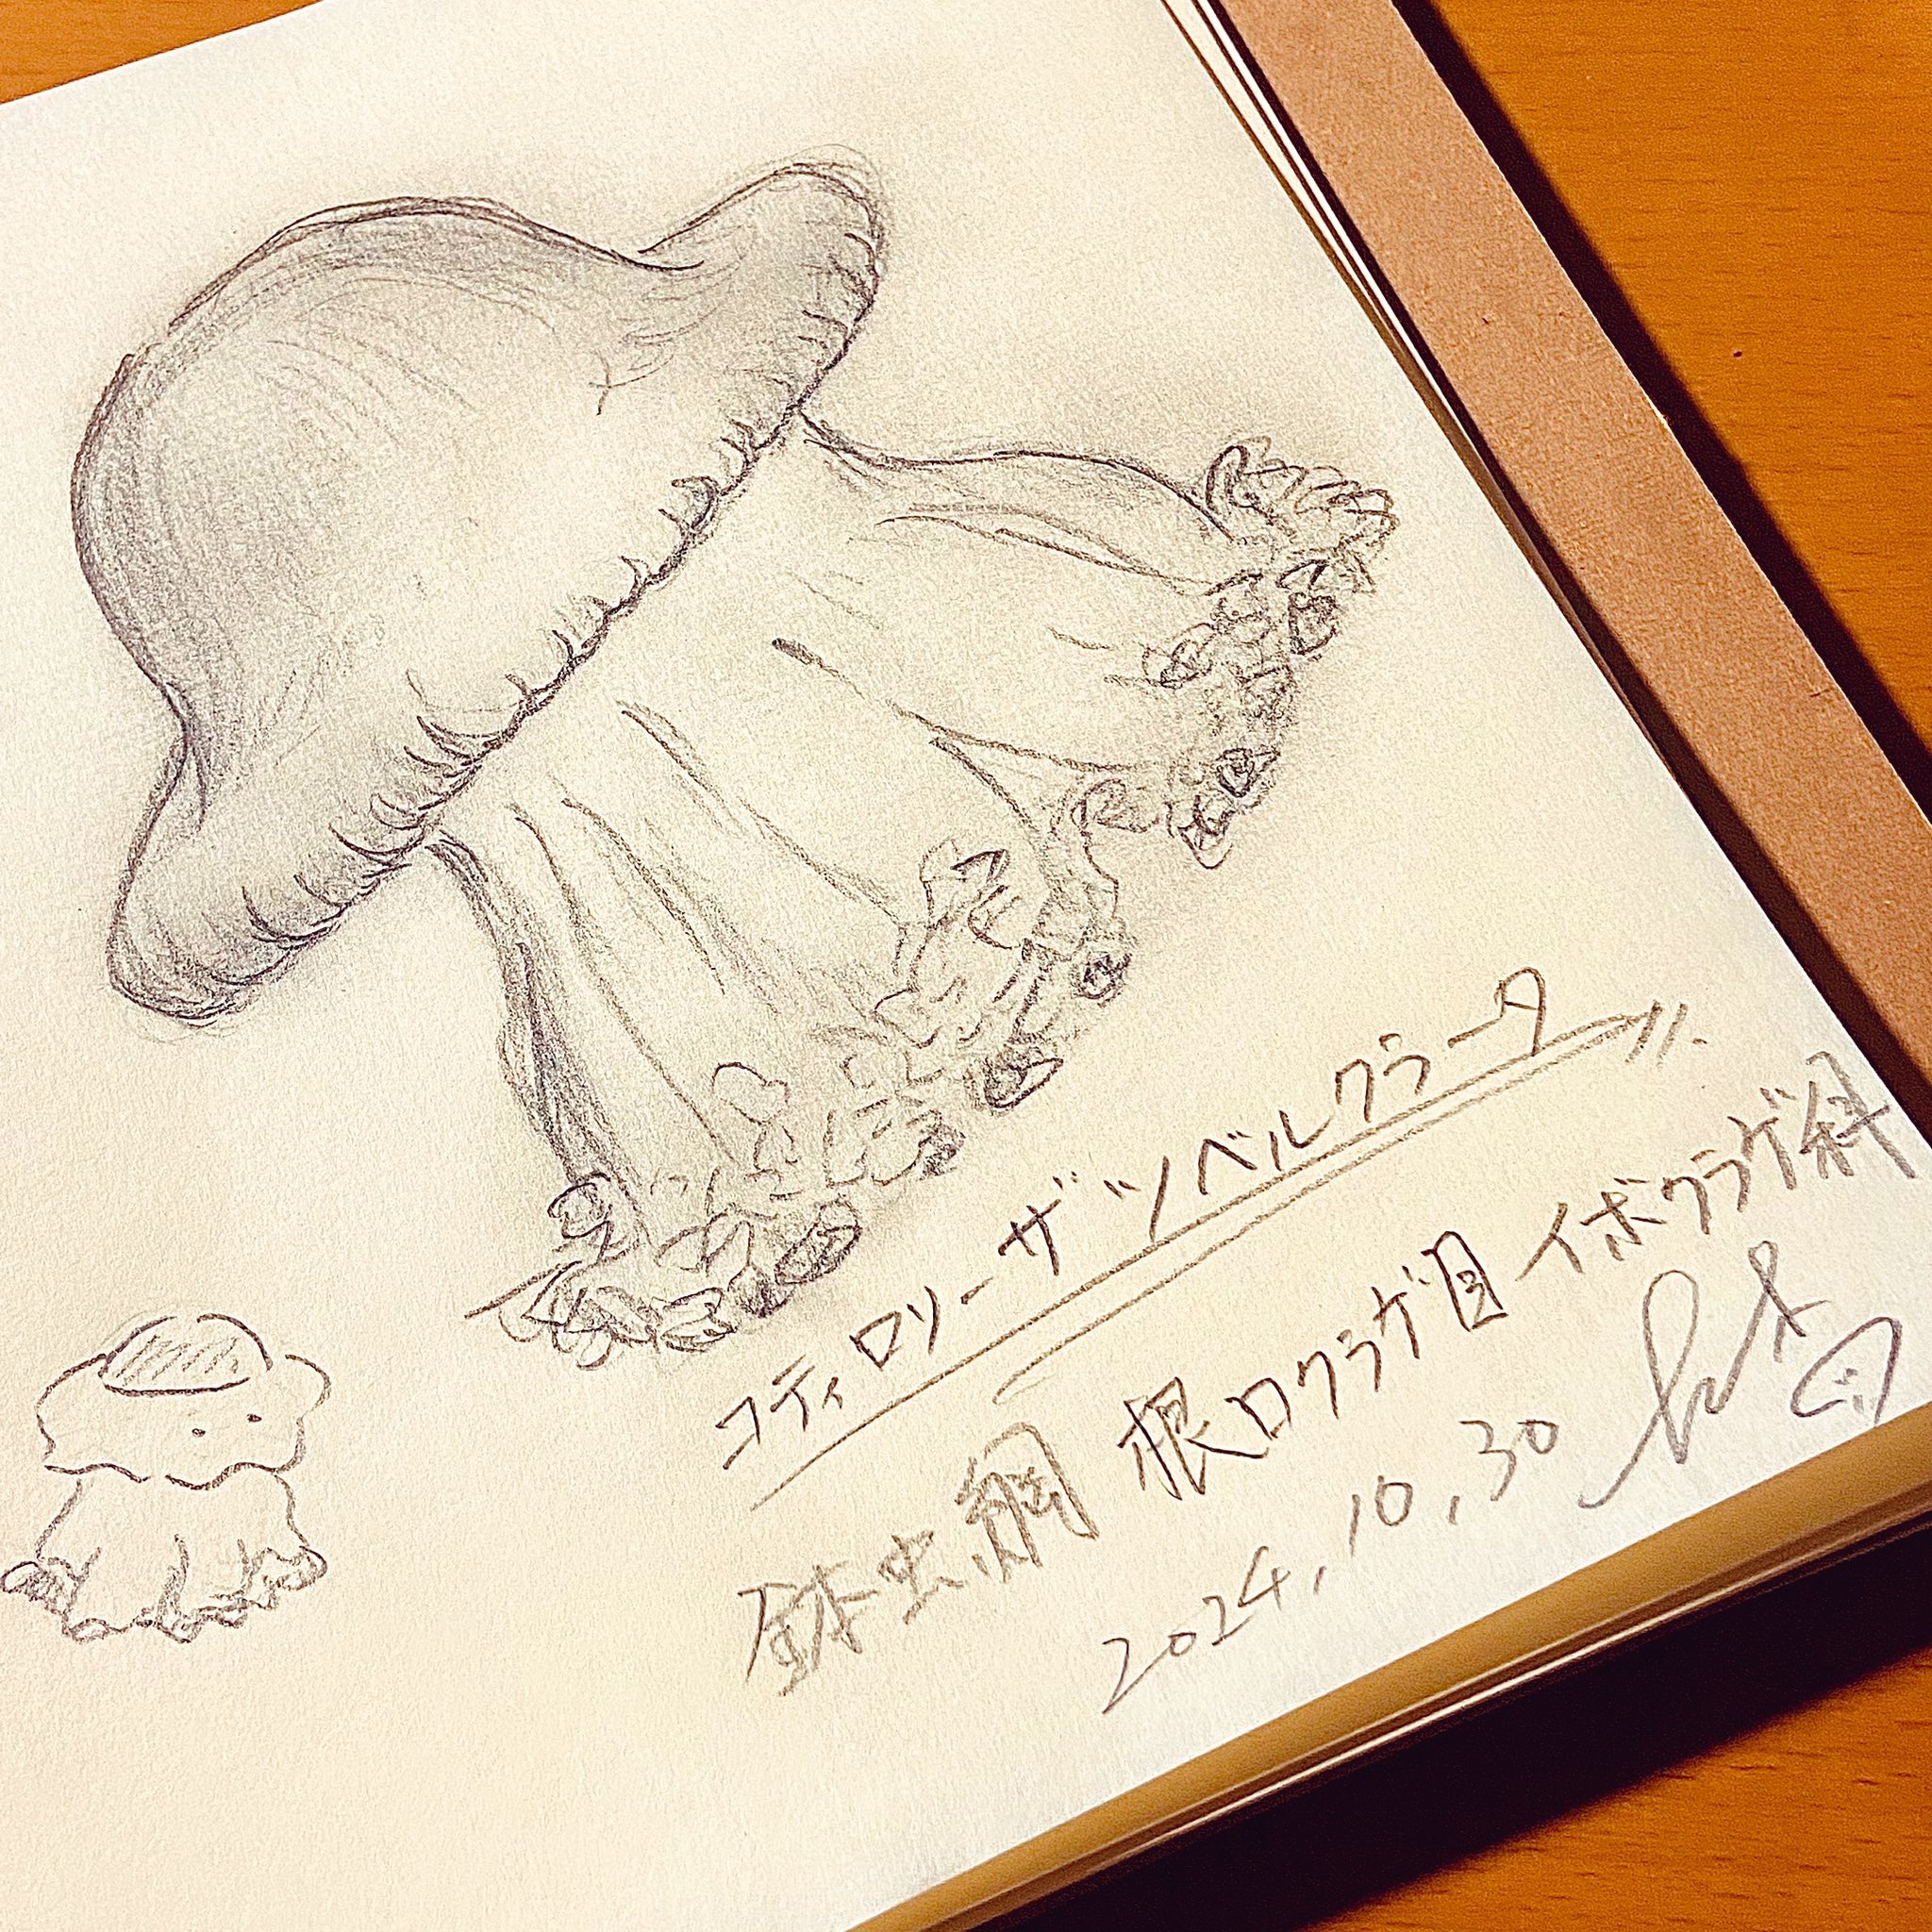 コティロリーザツベルクラータ
鉢虫綱 根口クラゲ目 イボクラゲ科
2024.10.30